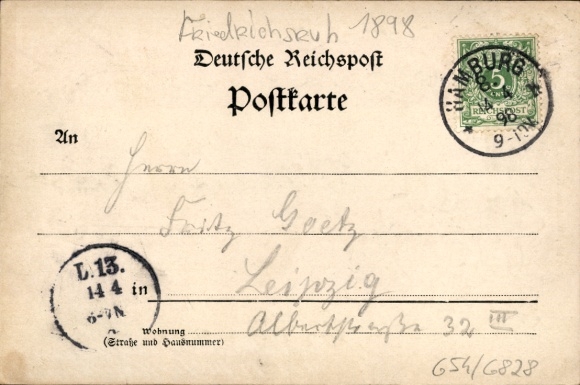 Friedrichsruh 1898
Deutsche Reichspost
Postkarte
HAMBURG
5
REICHSPOST
14 4
98
9-10V
An
Herrn
Fritz Goetz
in Leipzig
Albertstraße 32 III
Wohnung
(Straße und Hausnummer)
L.13.
14 4
6-7N
654/6828